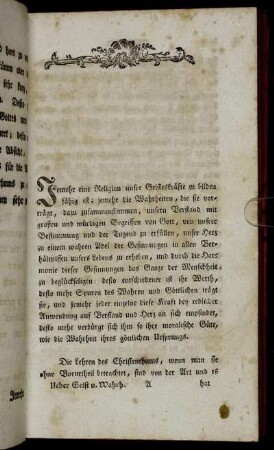 Jemehr eine Religion unsre Geisteskräfte zu bilden
fähig ist; jemehr die Wahrheiten, die sie vor-
trägt, dazu zusammenstimmen, unsern Verstand mit
grossen und würdigen Begriffen von Gott, von unsrer
Bestimmung und der Tugend zu erfüllen, unser Herz
zu einem wahren Adel der Gesinnungen in allen Ver-
hältnissen unsers Lebens zu erheben, und durch die Har-
monie dieser Gesinnungen das Ganze der Menschheit
zu beglückseligen: desto entschiedener ist ihr Werth,
desto mehr Spuren des Wahren und Göttlichen trägt
sie, und jemehr jeder einzelne diese Kraft bey redlicher
Anwendung auf Verstand und Herz an sich empfindet,
desto mehr verbürgt sich ihm so ihre moralische Güte,
wie die Wahrheit ihres götlichen Ursprungs.
Die Lehren des Christenthums, wenn man sie
ohne Vorurtheil betrachtet, sind von der Art und es
Ueber Geist u. Wahrh. A hat